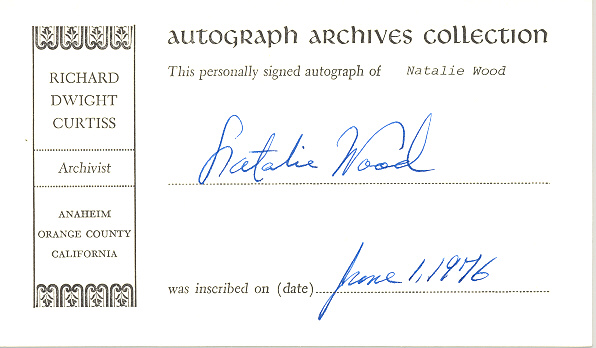 AUTOGRAPH ARCHIVES COLLECTION
This personally signed autograph of Natalie Wood
Natalie Wood
was inscribed on (date) June 1, 1976
RICHARD
DWIGHT
CURTISS
Archivist
ANAHEIM
ORANGE COUNTY
CALIFORNIA